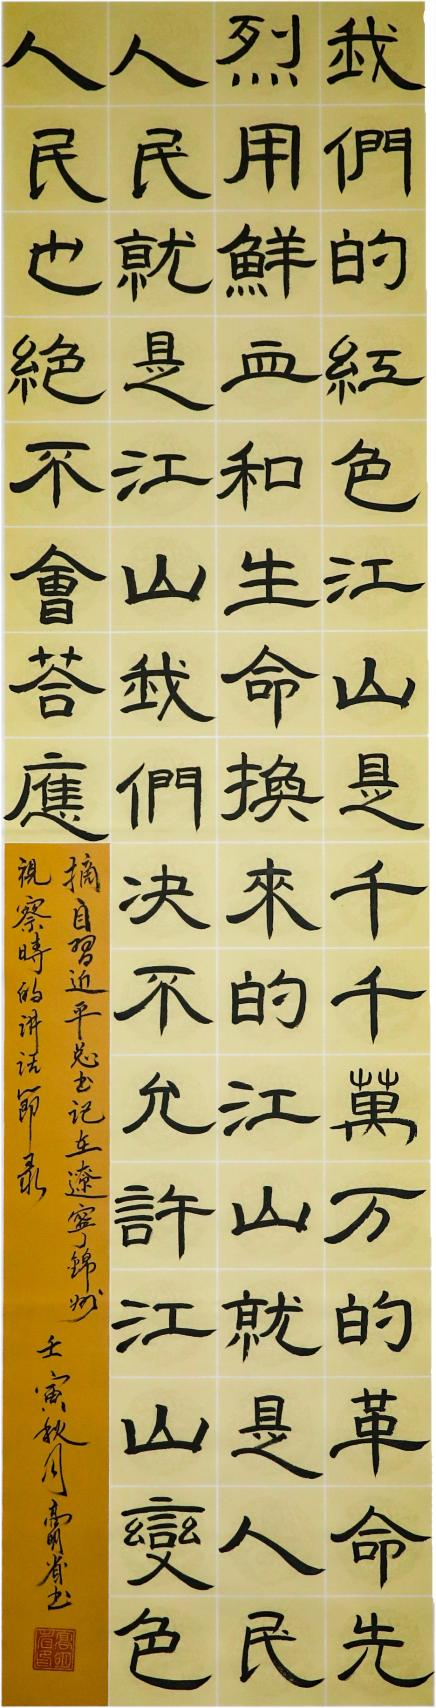 我們的紅色江山是千千萬万的革命先
烈用鮮血和生命換來的江山就是人民
人民就是江山我們决不允許江山變色
人民也絕不會荅應
摘自習近平总书记在遼寧錦州
視察時的讲话節录
壬寅秋月高明省书